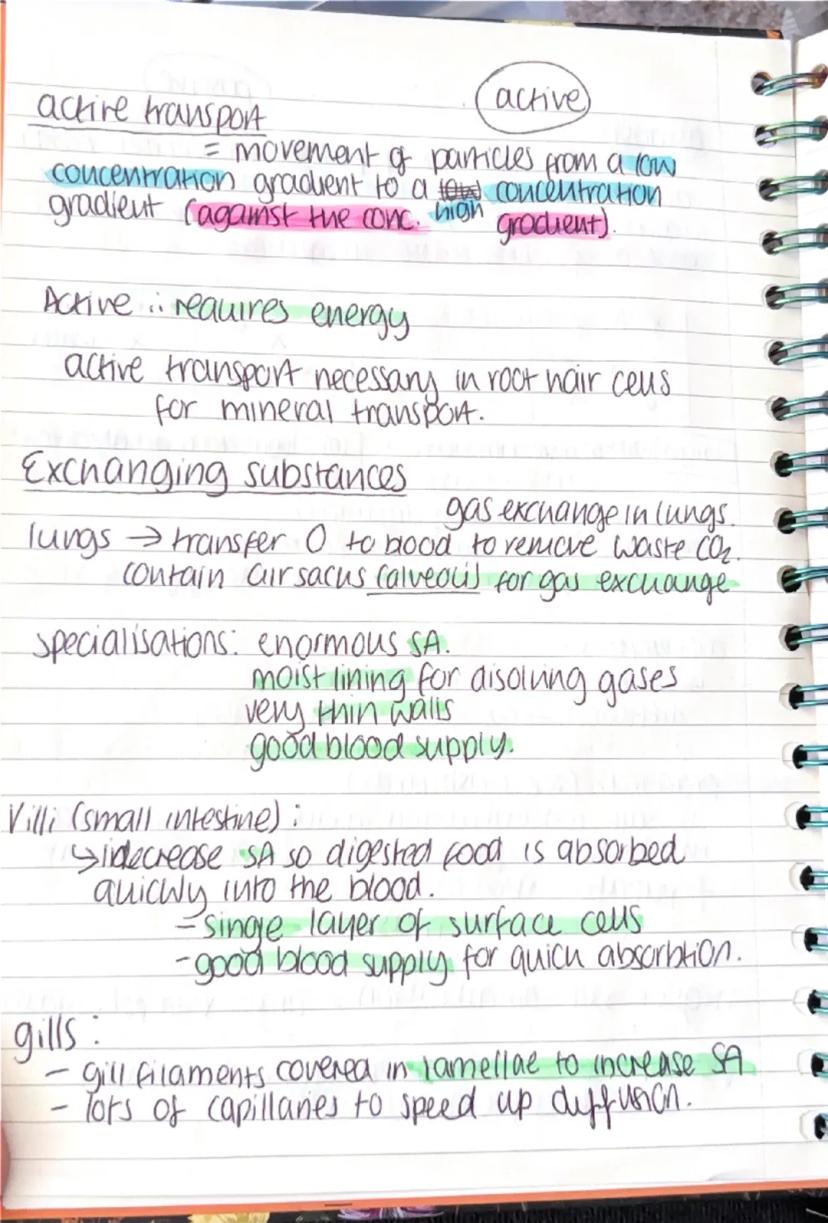 active
active transport
= movement of particles from a low
concentration gradient to a concentration
gradient (against the conc. high gradient).
Active ∴ requires energy
active transport necessary in root hair cells
for mineral transport.
Exchanging substances
gas exchange in lungs.
lungs → transfer O to blood to remove waste CO₂.
contain air sacus (alveoli) for gas exchange
specialisations: enormous SA.
moist lining for disolving gases
very thin walls
good blood supply.
Villi (small intestine):
↳ SA so digested food is absorbed
quickly into the blood.
- single layer of surface cells
- good blood supply for quick absorbtion.
gills:
- gill filaments covered in lamellae to increase SA
- lots of capillaries to speed up diffusion.